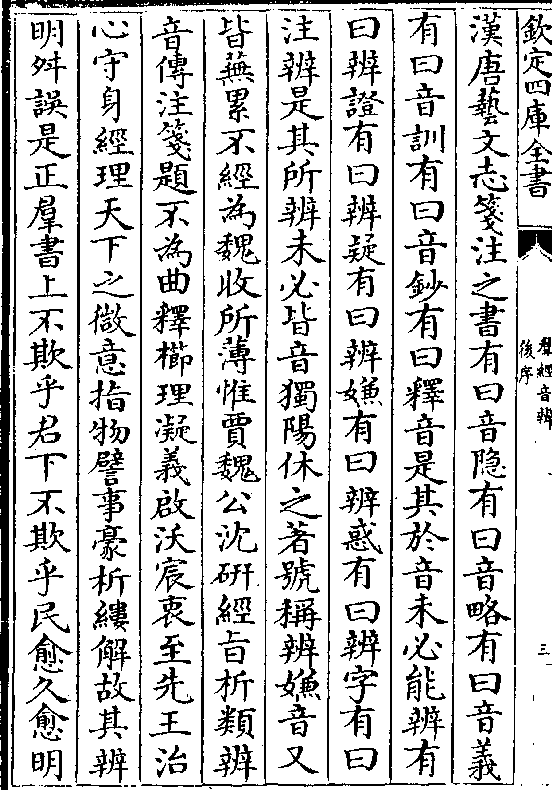 欽定四庫全書
羣經音辨
後序
三
漢唐藝文志箋注之書有曰音隐有曰音略有曰音義
有曰音訓有曰音鈔有曰釋音是其於音未必能辨有
曰辨證有曰辨疑有曰辨嫌有曰辨惑有曰辨字有曰
注辨是其所辨未必皆音獨陽休之著號稱辨嫌音又
皆蕪累不經為魏收所薄惟賈魏公沈硏經旨析類辨
音傳注箋題不為曲釋櫛理凝義啟沃宸衷至先王治
心守身經理天下之微意指物譬事豪析縷解故其辨
明舛誤是正羣書上不欺乎君下不欺乎民愈久愈明